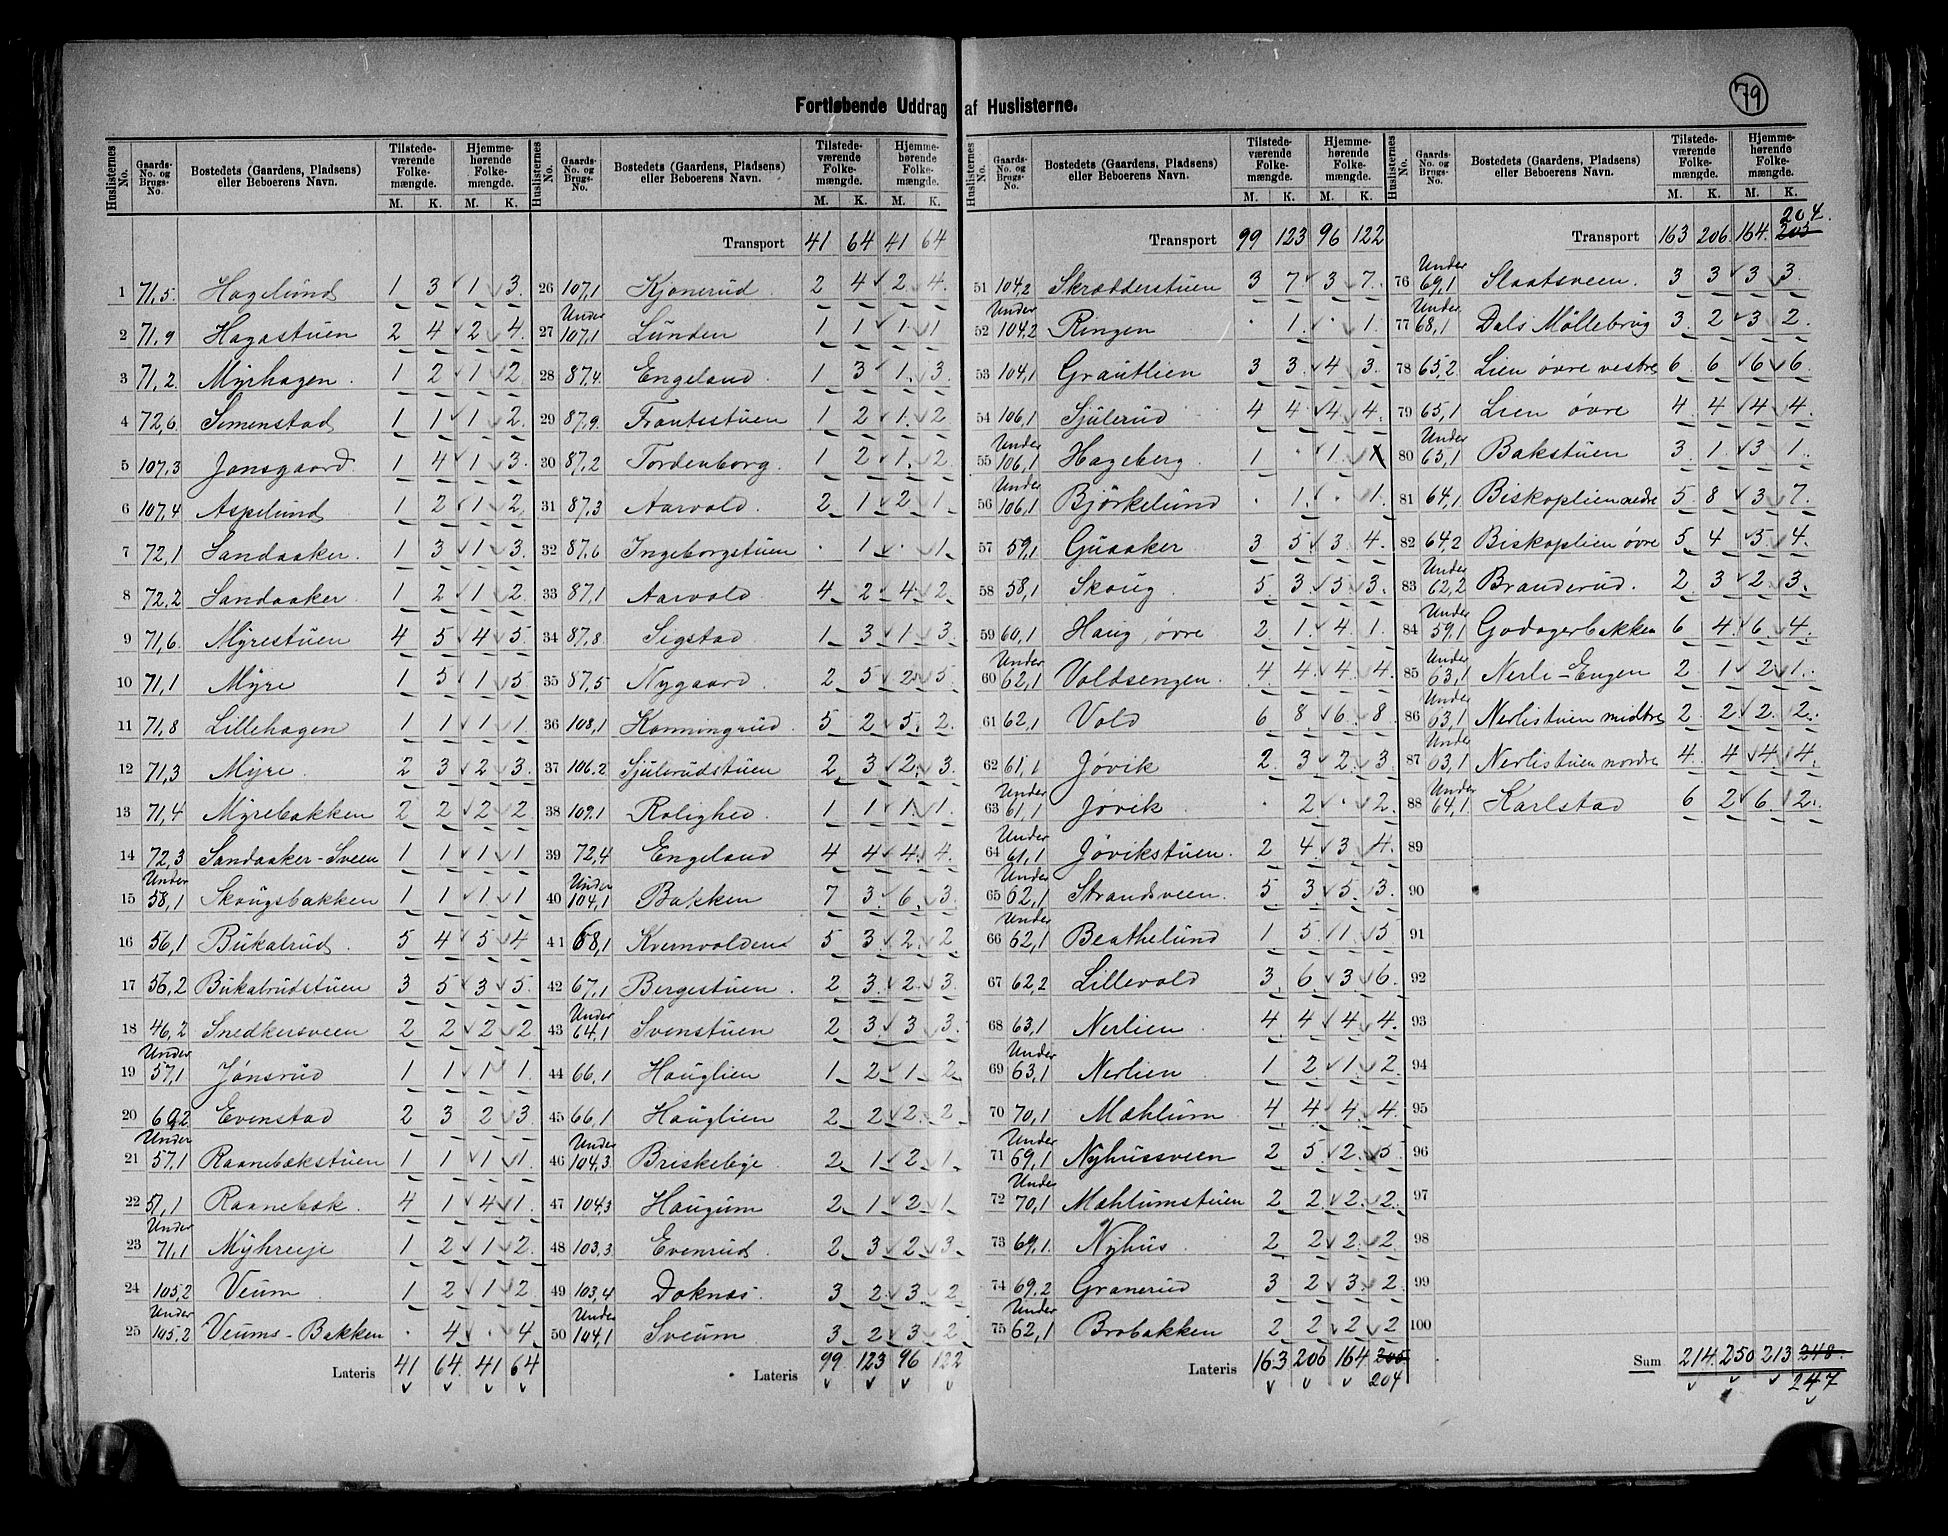 79
Fortløbende Uddrag af Huslisterne.
Huslisternes No. | Gaards-No. og Brugs-No. | Bostedets (Gaardens, Pladsens) eller Beboerens Navn. | Tilstedeværende Folkemængde. M. K. | Hjemmehørende Folkemængde. M. K.
1 71,5. Hagelund 1 3 1 3.
2 71,9 Hagastuen 2 4 2 4.
3 71,2. Myrhagen. 1 2 1 2
4 72,6 Semenstad 1 1 1 2.
5 107,3 Jonsgaard. 1 4 1 3.
6 107,4 Aspelund 1 2 1 2.
7 72,1 Sandaaker. 1 3 1 3.
8 72,2 Sandaaker. 1 2 1 2.
9 71,6. Myrestuen 4 5 4 5
10 71,1 Myre 1 5 1 5
11 71,8 Lillehagen 1 1 1 1
12 71,3 Myre. 2 3 2 3.
13 71,4 Myrebakken 2 2 2 2
14 72,3 Sandaaker-Sveen 1 1 1 1
15 Under 58,1 Skougsbakken 1 1 1 1
16 56,1 Bukalrud. 5 4 5 4
17 56,2 Bukalrudstuen 3 5 3 5.
18 46,2 Snedkersveen 2 2 2 2
19 Under 57,1 Jonsrud 1 1 1 1.
20 69,2 Evenstad 2 3 2 3.
21 Under 57,1 Raanebækstuen 1 1 1 1.
22 57,1 Raanebæk. 4 1 4 1.
23 Under 71,1 Myhreeje 1 2 1 2.
24 105,2 Veum. 1 2 1 2
25 Under 105,2 Veums-Bakken . 4 . 4
Lateris 41 64. 41 64
Transport 41 64 41 64
26 107,1 Kjonerud. 2 4 2 4.
27 Under 107,1 Lunden 1 1 1 1
28 87,4. Engeland. 1 3 1. 3.
29 87,9. Trontsstuen 1 2 1. 2
30 87,2 Tordenborg. 1 2 1. 2
31 87,3 Aarvold. 2 1 2 1.
32 87,6 Ingeborgstuen . 1 . 1
33 87,1 Aarvold 4 2 4 2
34 87,8. Segstad 1 3 1 3.
35 87,5 Nygaard. 2 5 2 5
36 108,1 Konningrud. 5 2 5. 2.
37 106,2 Sjulerudstuen 2 3 2. 3.
38 109,1 Rolighed 1 1 1. 1.
39 72,4 Engeland 4 4 4. 4.
40 Under 104,1 Bakken 7 3 6 3.
41 68,1 Kvernvolden 5 3 2 2
42 67,1 Bergestuen. 2 3 2 3
43 Under 64,1 Svenstuen 2 3 3 3.
44 66,1 Hauglien 1 2 1 2
45 66,1 Hauglien 2 2 2. 2
46 Under 104,3. Briskebye 2 1 2 1
47 104,3 Haugum 2 1 2 1.
48 103,3 Evenrud. 2 3 2 3
49 103,4 Doknæs. 3 2 3. 2
50 Under 104,1 Sveum 3 2 3 2
Lateris 99 123 96 122
Transport 99 123 96 122
51 104,2 Skrædderstuen 3 7 3 7.
52 Under 104,2 Ringen . 1 . 1.
53 104,1 Grautlien 3 3. 4 3.
54 106,1 Sjulerud 4 4 4 4.
55 Under 106,1 Hageberg. 1 . 1
56 Under 106,1 Bjørkelund . 1 . 1.
57 59,1 Guaaker 3 5 3. 4.
58 58,1 Skoug. 5 3 5 3.
59 60,1 Haug øvre 2 1. 4. 1.
60 Under 62,1 Voldsengen. 4 4. 4. 4
61 62,1 Vold 6 8 6. 8.
62 61,1 Jøvik 2. 3 2. 3
63 Under 61,1 Jøvik . 2 . 2.
64 Under 61,1 Jøvikstuen. 2 4 3 4.
65 Under 62,1 Strandsveen. 5 3 5 3.
66 Under 62,1 Beathelund 1 5 1 5
67 62,2 Lillevold 3 6 3 6.
68 63,1 Nerlien 4 4 4 4.
69 Under 63,1 Nerlien 1 2 1 2.
70 70,1 Mæhlum. 4 4 4 4.
71 Under 69,1 Nyhussveen 2 5 2. 5.
72 Under 70,1 Mæhlumstuen 2 2 2. 2.
73 69,1. Nyhus. 2 2 2. 2.
74 69,2 Granerud 3 2 3 2.
75 Under 62,1 Brobakken 2 2 2 2
Lateris 163 206 164 205 204
Transport 163 206. 164. 205 204.
76 Under 69,1 Slaatsveen. 3 3 3 3.
77 Under 68,1 Dals Møllebrug 3 2 3 2.
78 65,2 Lien øvre vestre 6 6 6 6.
79 65,1 Lien øvre 4 4 4 4.
80 Under 65,1 Bakstuen 3. 1. 3 1.
81 64,1 Biskoplien nedre 5 8 3 7.
82 64,2 Biskoplien øvre 5 4 5 4.
83 Under 62,2 Branderud. 2 3 2 3.
84 Under 59,1 Godagerbakken 6 4. 6. 4.
85 Under 63,1 Nerli-Engen 2 1 2 1.
86 Under 63,1 Nerlistuen midtre 2. 2 2. 2.
87 Under 63,1 Nerlistuen nordre 4. 4 4. 4
88 Under 64,1 Karlstad 6 2 6. 2.
89
90
91
92
93
94
95
96
97
98
99
100
Sum 214. 250 213 248. 247